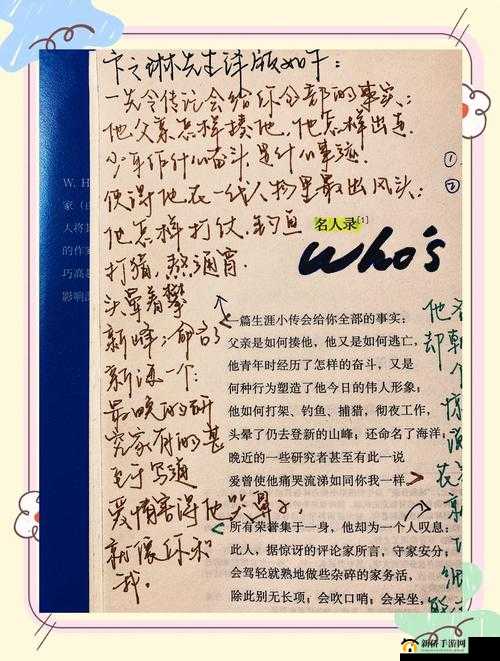 卞之琳先生译版如下：
一先令传记会给你全部的事实：
他父亲怎样揍他，他怎样出走，
少年作什么奋斗，是什么事迹
使得他在一代人物里最出风头：
他怎样打仗，钓鱼
打猎，熬通宵
头晕着攀
新峰；命名了
新海一个：
最晚的研
究家有的甚
至于写道
爱情害得他哭鼻子，
就像你和
我。
W. H
家（
人将以
的作家
巧高超
影响
①
②
名人录[1]
who's
一篇生涯小传会给你全部的事实：
父亲是如何揍他，他又是如何逃亡，
他青年时经历了怎样的奋斗，又是
何种行为塑造了他今日的伟人形象；
他如何打架、钓鱼、捕猎，彻夜工作，
头晕了仍去登新的山峰；还命名了海洋：
晚近的一些研究者甚至有此一说
爱曾使他痛哭流涕如同你我一样。
所有荣誉集于一身，他却为一个人叹息；
此人，据惊讶的评论家所言，守家安分，
会驾轻就熟地做些杂碎的家务活，
除此别无长项；会吹口哨；会呆坐，
他
却
个
惊
新侨手游网